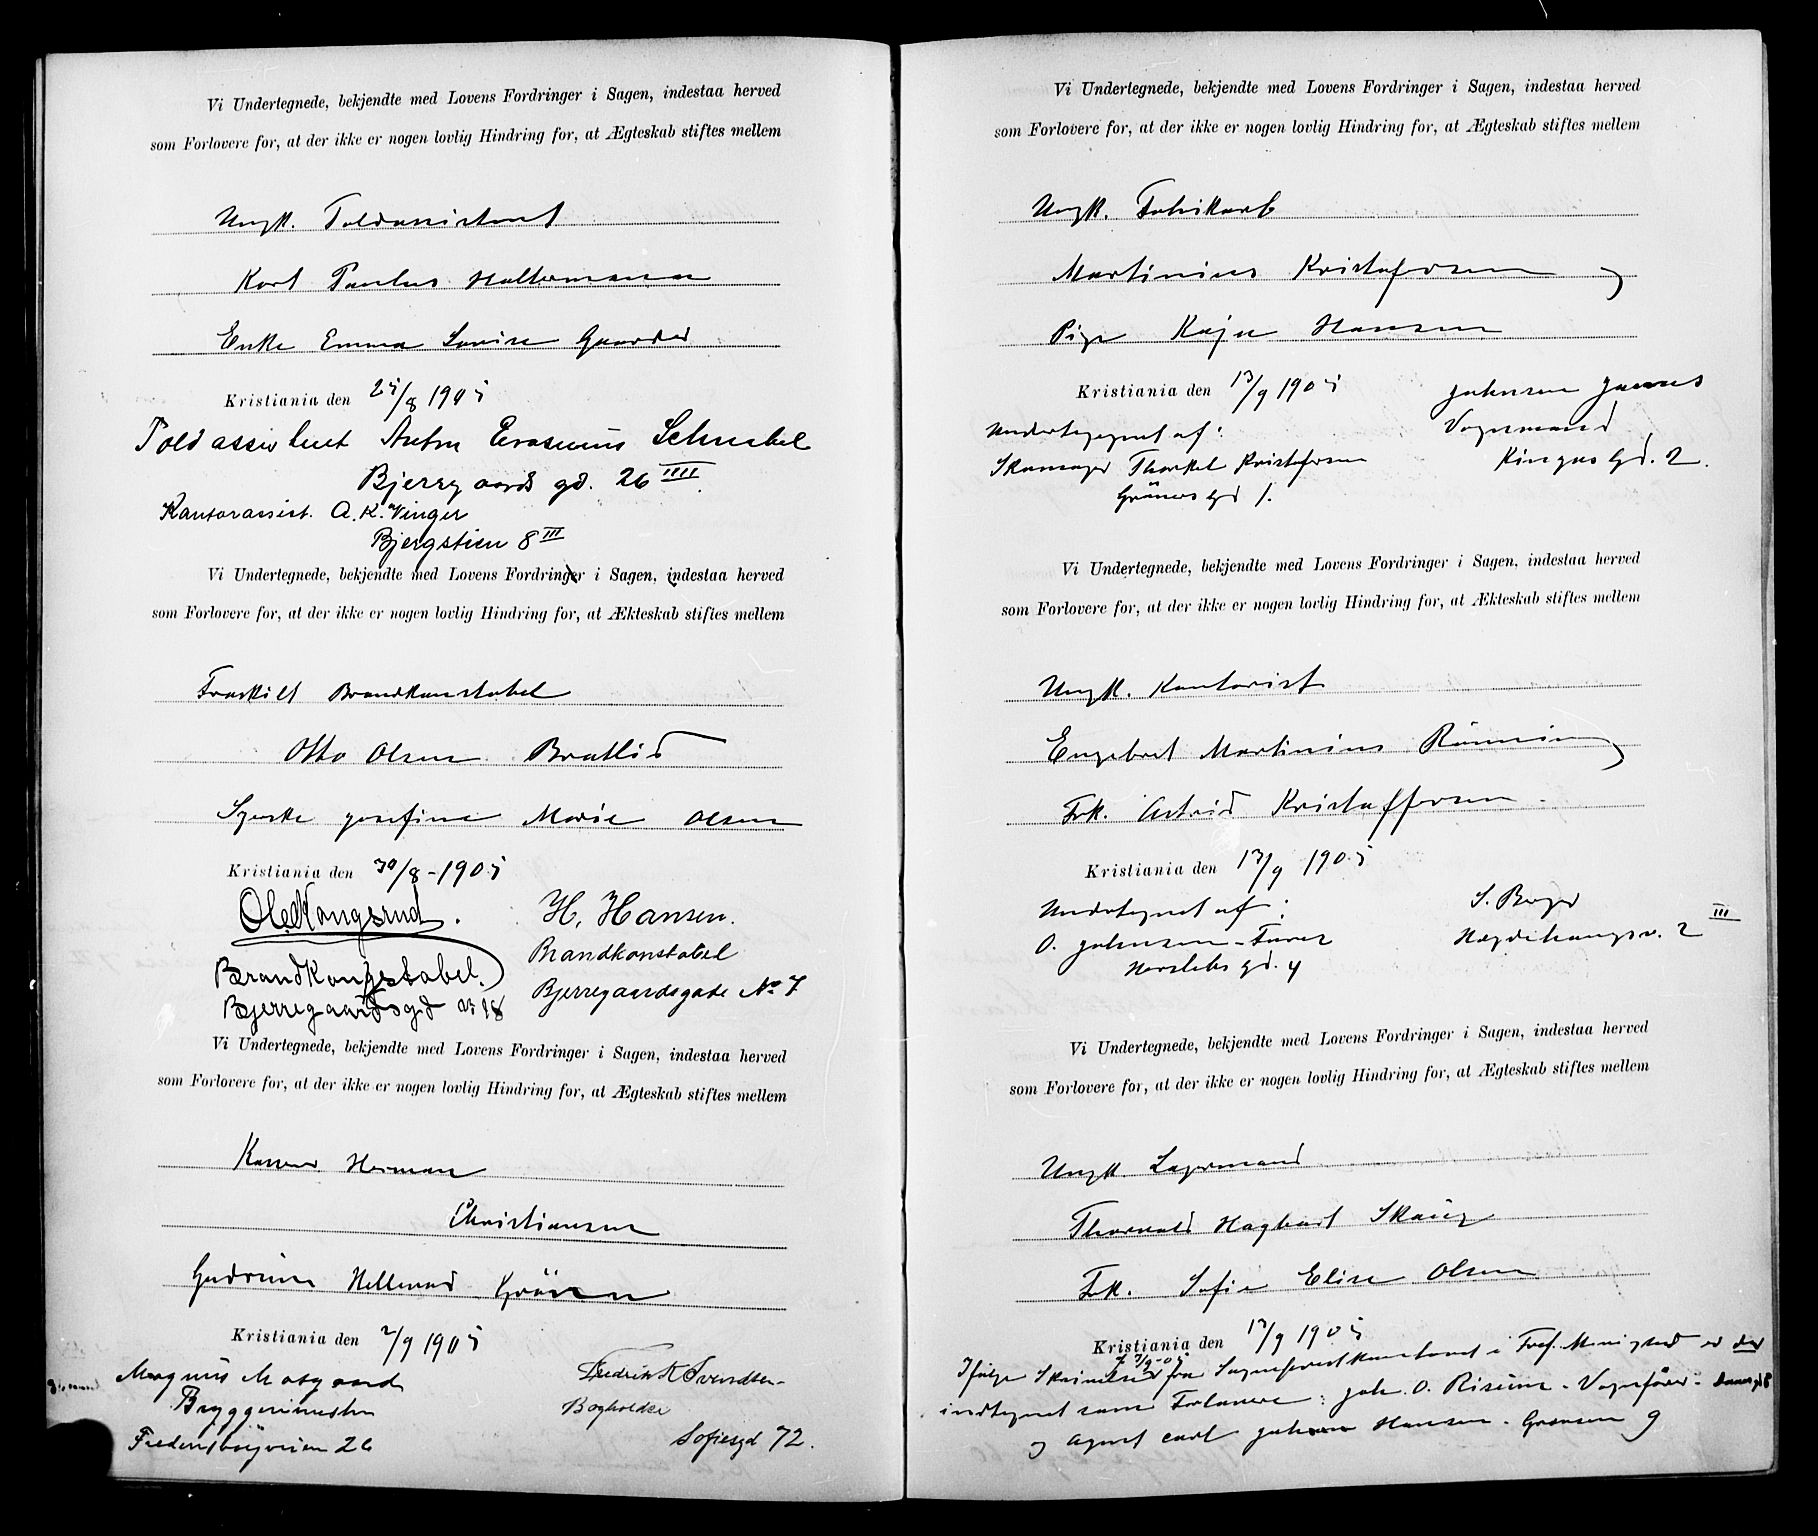 Vi Undertegnede, bekjendte med Lovens Fordringer i Sagen, indestaa herved
som Forlovere for, at der ikke er nogen lovlig Hindring for, at Ægteskab stiftes mellem
Ungk. Toldassistent
Karl Paulus Haltermann
Enke Emma Lovise Gaarder
Kristiania den 25/8 1905
Toldassistent Anton Erasmus Schnabel
Bjerregaards gd. 26 IIII
Kontorassist. A. K. Vinger
Bjergstien 8 III
Vi Undertegnede, bekjendte med Lovens Fordringer i Sagen, indestaa herved
som Forlovere for, at der ikke er nogen lovlig Hindring for, at Ækteskab stiftes mellem
Fraskilt Brandkonstabel
Otto Olsen Bratlid
Syerske Josefine Marie Olsen
Kristiania den 30/8 - 1905
Ole Kongsrud. H. Hansen.
Brandkonstabel. Brandkonstabel
Bjerregaardsgd 18 Bjerregaardsgade No 7
Vi Undertegnede, bekjendte med Lovens Fordringer i Sagen, indestaa herved
som Forlovere for, at der ikke er nogen lovlig Hindring for, at Ægteskab stiftes mellem
Herman
Christiansen
Gudrun Hellerud Grönn
Kristiania den 2/9 1905
Magnus Mosgaard Fredrik K Svendsen
Bryggerimester Bogholder
Fredensborgveien 26 Sofiesgd 72.
Vi Undertegnede, bekjendte med Lovens Fordringer i Sagen, indestaa herved
som Forlovere for, at der ikke er nogen lovlig Hindring for, at Ægteskab stiftes mellem
Ungk. Fabrikarb
Martinius Kristofersen og
Pige Kaja Hansen
Kristiania den 13/9 1905 Johnsen
Undertegnet af: Vognmand
Skomager Thorkel Kristofersen Kingos gd. 2.
Grüners gd 1.
Vi Undertegnede, bekjendte med Lovens Fordringer i Sagen, indestaa herved
som Forlovere for, at der ikke er nogen lovlig Hindring for, at Ækteskab stiftes mellem
Ungk. Kontorist
Engebret Martinius Rönning
Frk. Astrid Kristoffersen
Kristiania den 13/9 1905
Undertegnet af: S. Berger
O. Johnsen - Hægdehaugsv. 2 III
Herslebs gd. 4
Vi Undertegnede, bekjendte med Lovens Fordringer i Sagen, indestaa herved
som Forlovere for, at der ikke er nogen lovlig Hindring for, at Ægteskab stiftes mellem
Ungk Lagermand
Thorvald Hagbart Skaug
Frk. Sofie Elise Olsen
Kristiania den 13/9 1905
Ifølge Skrivelse fra Sogneprestkontoret i Tref. Menighed er der
indtegnet som Forlovere: Joh. O. - Vognfører -
og Agent Carl Johan Hansen - Grønsen 9